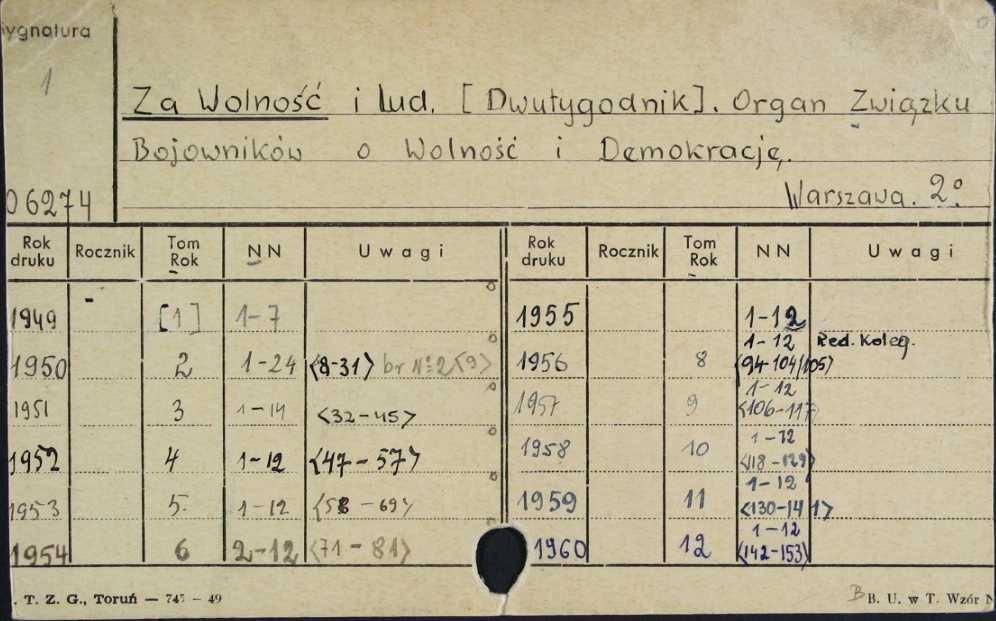 Sygnatura
1
Za Wolność i Lud. [Dwutygodnik]. Organ Związku
Bojowników o Wolność i Demokrację.
06274 Warszawa. 2°
Rok druku Rocznik Tom Rok NN Uwagi Rok druku Rocznik Tom Rok NN Uwagi
1949 [1] 1-7 1955 1-12
1950 2 1-24 <8-31> br № 2<9> 1956 8 1-12 <94-104/105> Red. Koleg.
1951 3 1-14 <32-45> 1957 9 1-12 <106-117>
1952 4 1-12 <47-57> 1958 10 1-12 <118-129>
1953 5. 1-12 <58-69> 1959 11 1-12 <130-141>
1954 6 2-12 <71-81> 1960 12 1-12 <142-153>
. T. Z. G., Toruń — 747 — 49 B B. U. w T. Wzór N